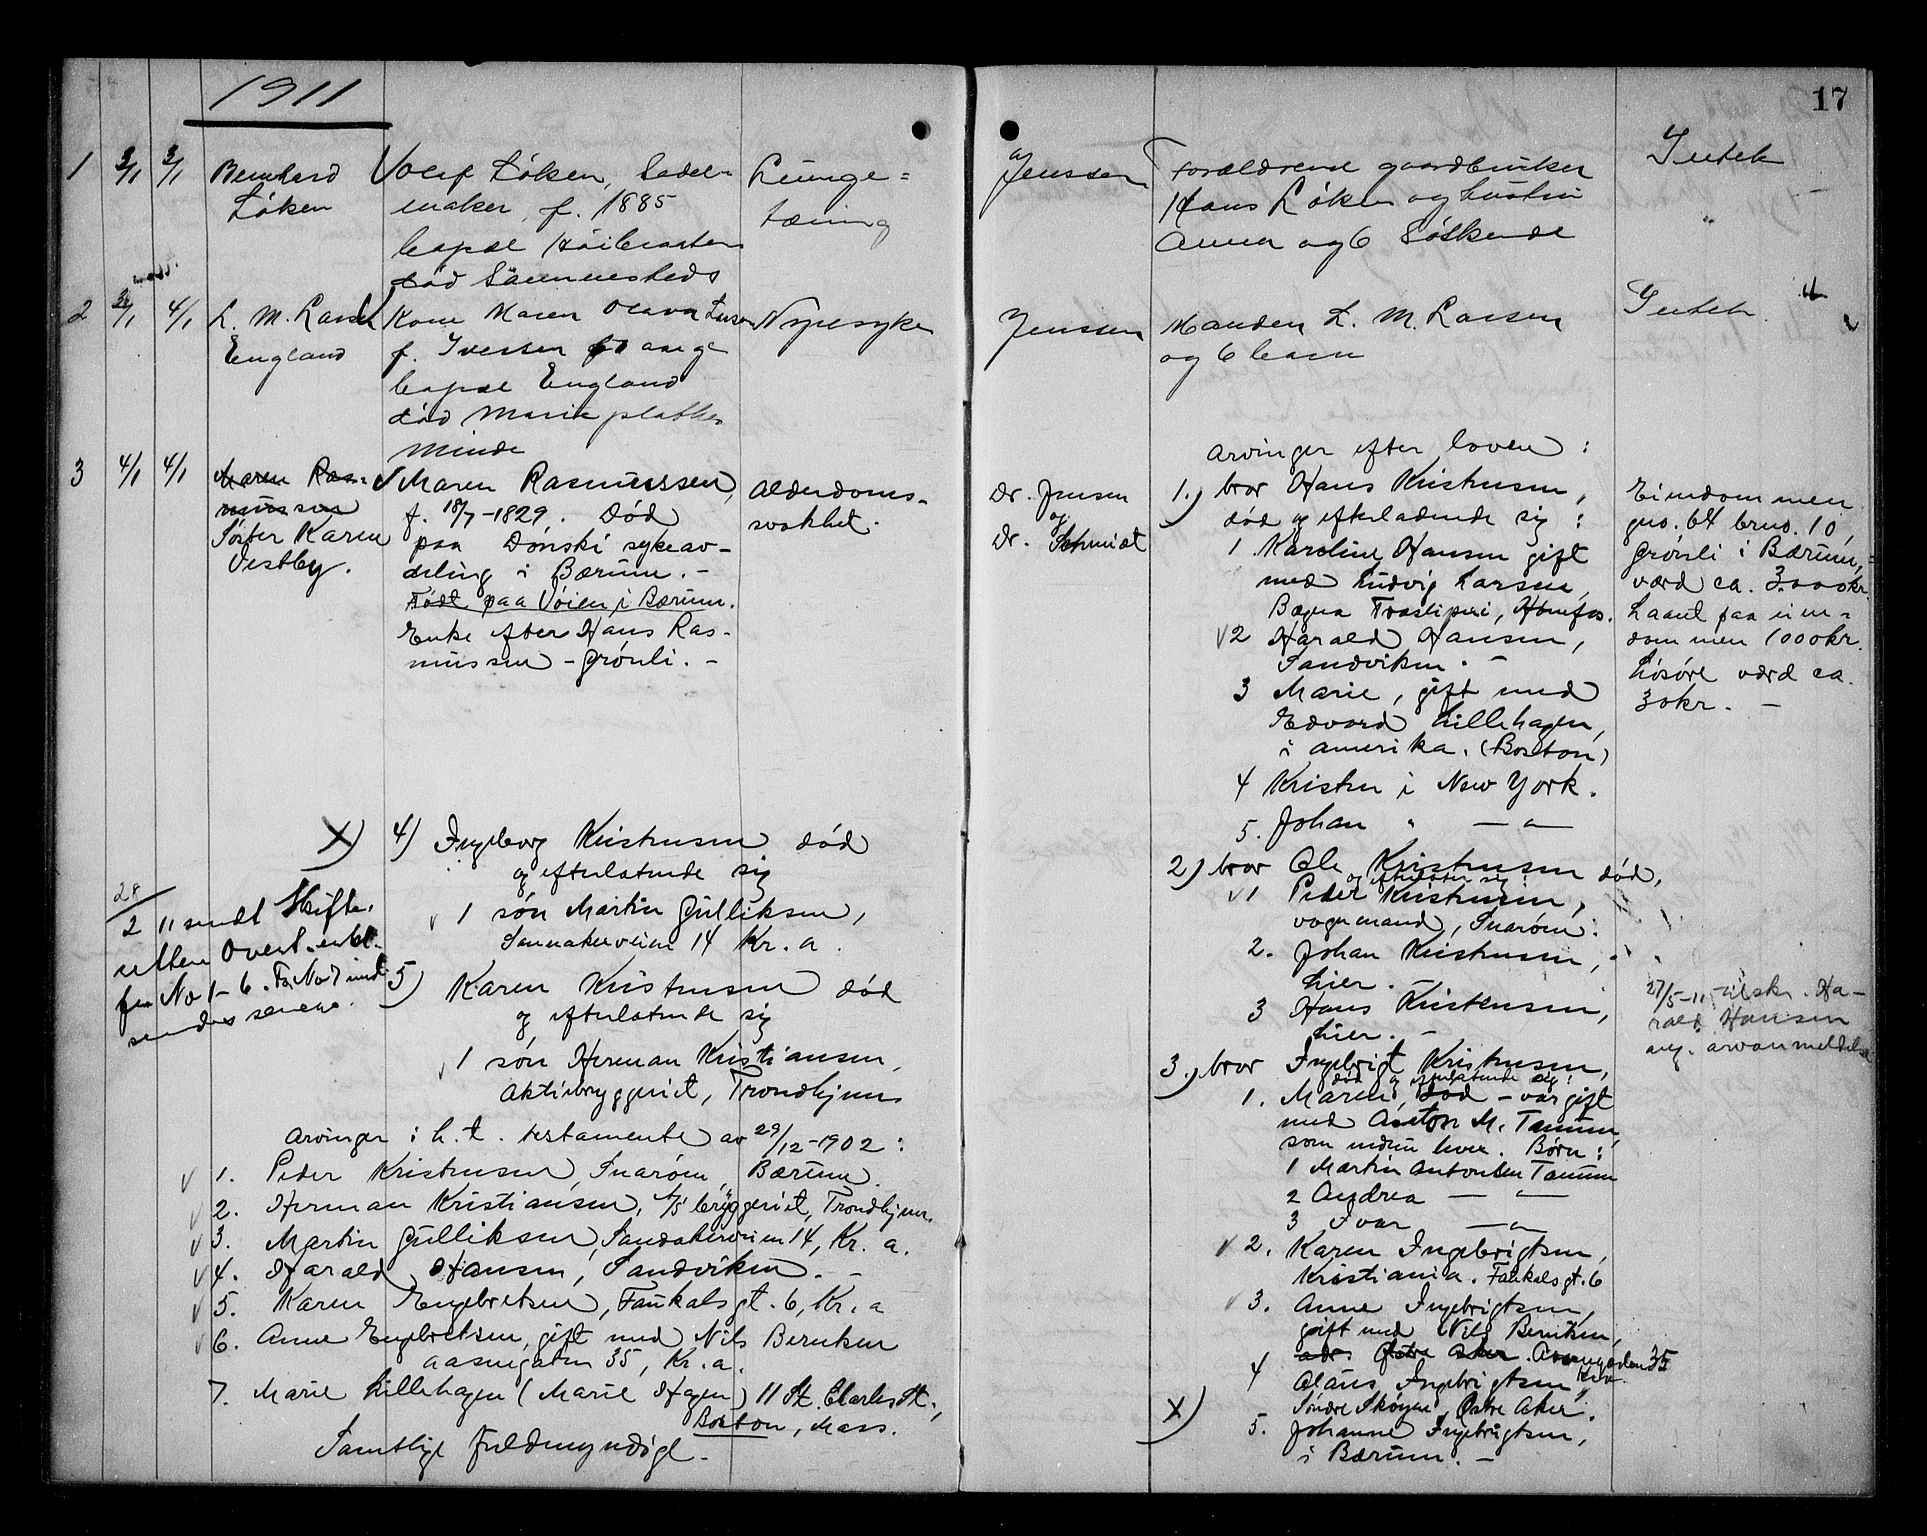 1911
17
1 3/1 3/1 Bernhard
Løken
Olaf Løken, Sadel-
maker, f. 1885
bopæl Høibraaten
død Sammesteds
Lunge=
tæring
Jenssen
Forældrene gaardbruker
Hans Løken og hustru
Anna og 6 Søskende
Intet
2 4/1 L. M. Larsen
England
Kone Maren Olava Larsen
f. Iversen
bopæl England
død Marie plathes
minde
Nyresyke
Jenssen
Manden L. M. Larsen
og 6 barn
Intet
3 4/1 4/1 Maren Ras-
mussen
Søster Karen
Vestby.
Maren Rasmussen,
f. 18/7-1829. Død
paa Dønski sykeav-
deling i Bærum. -
Født paa Vøien i Bærum.
Enke efter Hans Ras-
mussen - Grønli. -
Alderdoms-
svakhet.
Dr. Jensen
og
Dr. Schmidt
Arvinger efter loven :
1.) bror Hans Kristensen,
død og efterladende sig :
1 Karoline Hansen gift
med Ludvig Larsen,
Bægna Træsliperi, Hønefos.
2 Harald Hansen,
Sandviken. -
3 Marie, gift med
Edvard Lillehagen,
i Amerika. (Boston)
4 Kristen i New York.
5. Johan " — " —
2) bror Ole Kristensen død,
og efterlater sig
1 Peder Kristensen,
vognmand, Snarøen.
2. Johan Kristensen,
hier. -
3 Hans Kristensen,
hier. -
3.) bror Ingebrigt Kristensen,
død og efterlatende sig :
1. Maren, død - var gift
med Anton M. Tanum,
som endnu lever. Børn :
1 Martin Antonsen Tanum
2 Andrea — " —
3 Ivar — " —
2. Karen Ingebrigtsen,
Kristiania. Falkals gt. 6
3. Anne Ingebrigtsen,
gift med Nils Berntsen,
adr. Østre Aker. Aasengaden 35
4 Olaus Ingebrigtsen,
Søndre Skøyen, Østre Aker.
X) 5. Johanne Ingebrigtsen,
i Bærum. -
Eiendommen
gno. 64 brno. 10,
Grønli i Bærum,
værd ca. 3000kr.
Laant paa eien-
dommen 1000kr.
Løsøre værd ca.
30kr. -
27/5-11 tilskr. Ha-
rald Hansen
ang. arvanmeldelse
X) 4) Ingeborg Kristensen død
og efterlatende sig
1 søn Martin Gulliksen,
Sannakerveien 14 Kr. a.
5) Karen Kristensen død
og efterlatende sig
1 søn Herman Kristiansen,
Aktiebryggeriet, Trondhjem
28/2 11 sendt Skifte-
retten Overt.
fra No 1-6. Fra No 7 ind-
sendes senere.
Arvinger i h. t. testamente av 29/12-1902 :
1. Peder Kristensen, Snarøen, Bærum.
2. Herman Kristiansen, A/S bryggeriet, Trondhjem.
3. Martin Gulliksen, Sandakerveien 14, Kr. a.
4. Harald Hansen, Sandviken. -
5. Karen Engebretsen, Falkals gt. 6, Kr. a
6. Anne Engebretsen, gift med Nils Berntsen
Aasengaten 35, Kr. a.
7. Marie Lillehagen (Marie Hagen) 11 St. Charles St.,
Boston, Mass.
Samtlige fuldmyndige. -